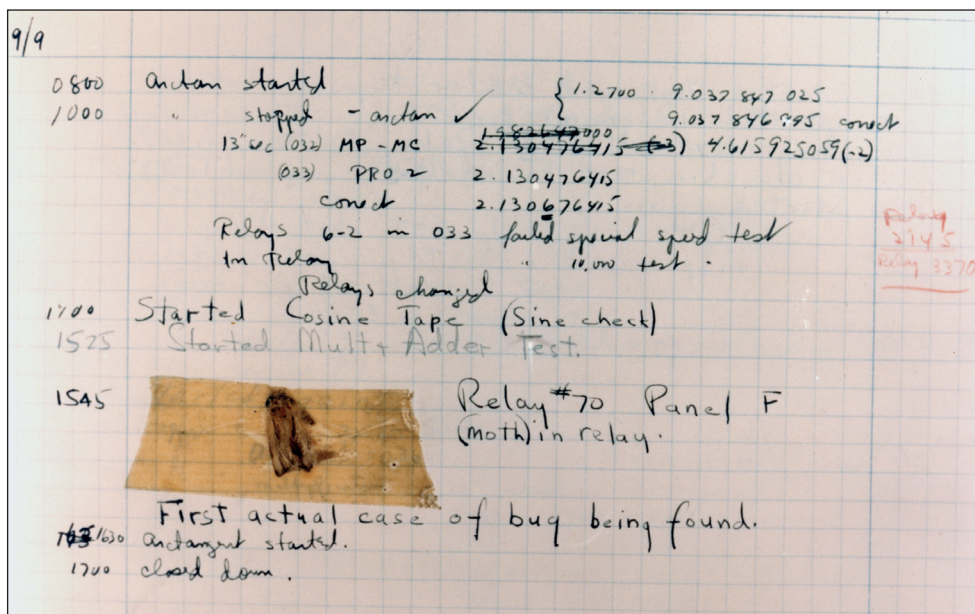 9/9
0800 arctan started { 1.2700 · 9.037 847 025
1000 " stopped - arctan ✓ 9.037 846 995 correct
13"sec (032) MP - MC 2.130476415 (-3) 4.615925059(-2)
(033) PRO 2 2.130476415
correct 2.130676415
Relays 6-2 in 033 failed special speed test
In Relay " 10,000 test .
Relays changed
Relay
2145
Relay 3370
1700 Started Cosine Tape (Sine check)
1525 Started Mult + Adder Test.
1545 Relay #70 Panel F
(moth) in relay.
First actual case of bug being found.
1630 arctangent started.
1700 closed down.